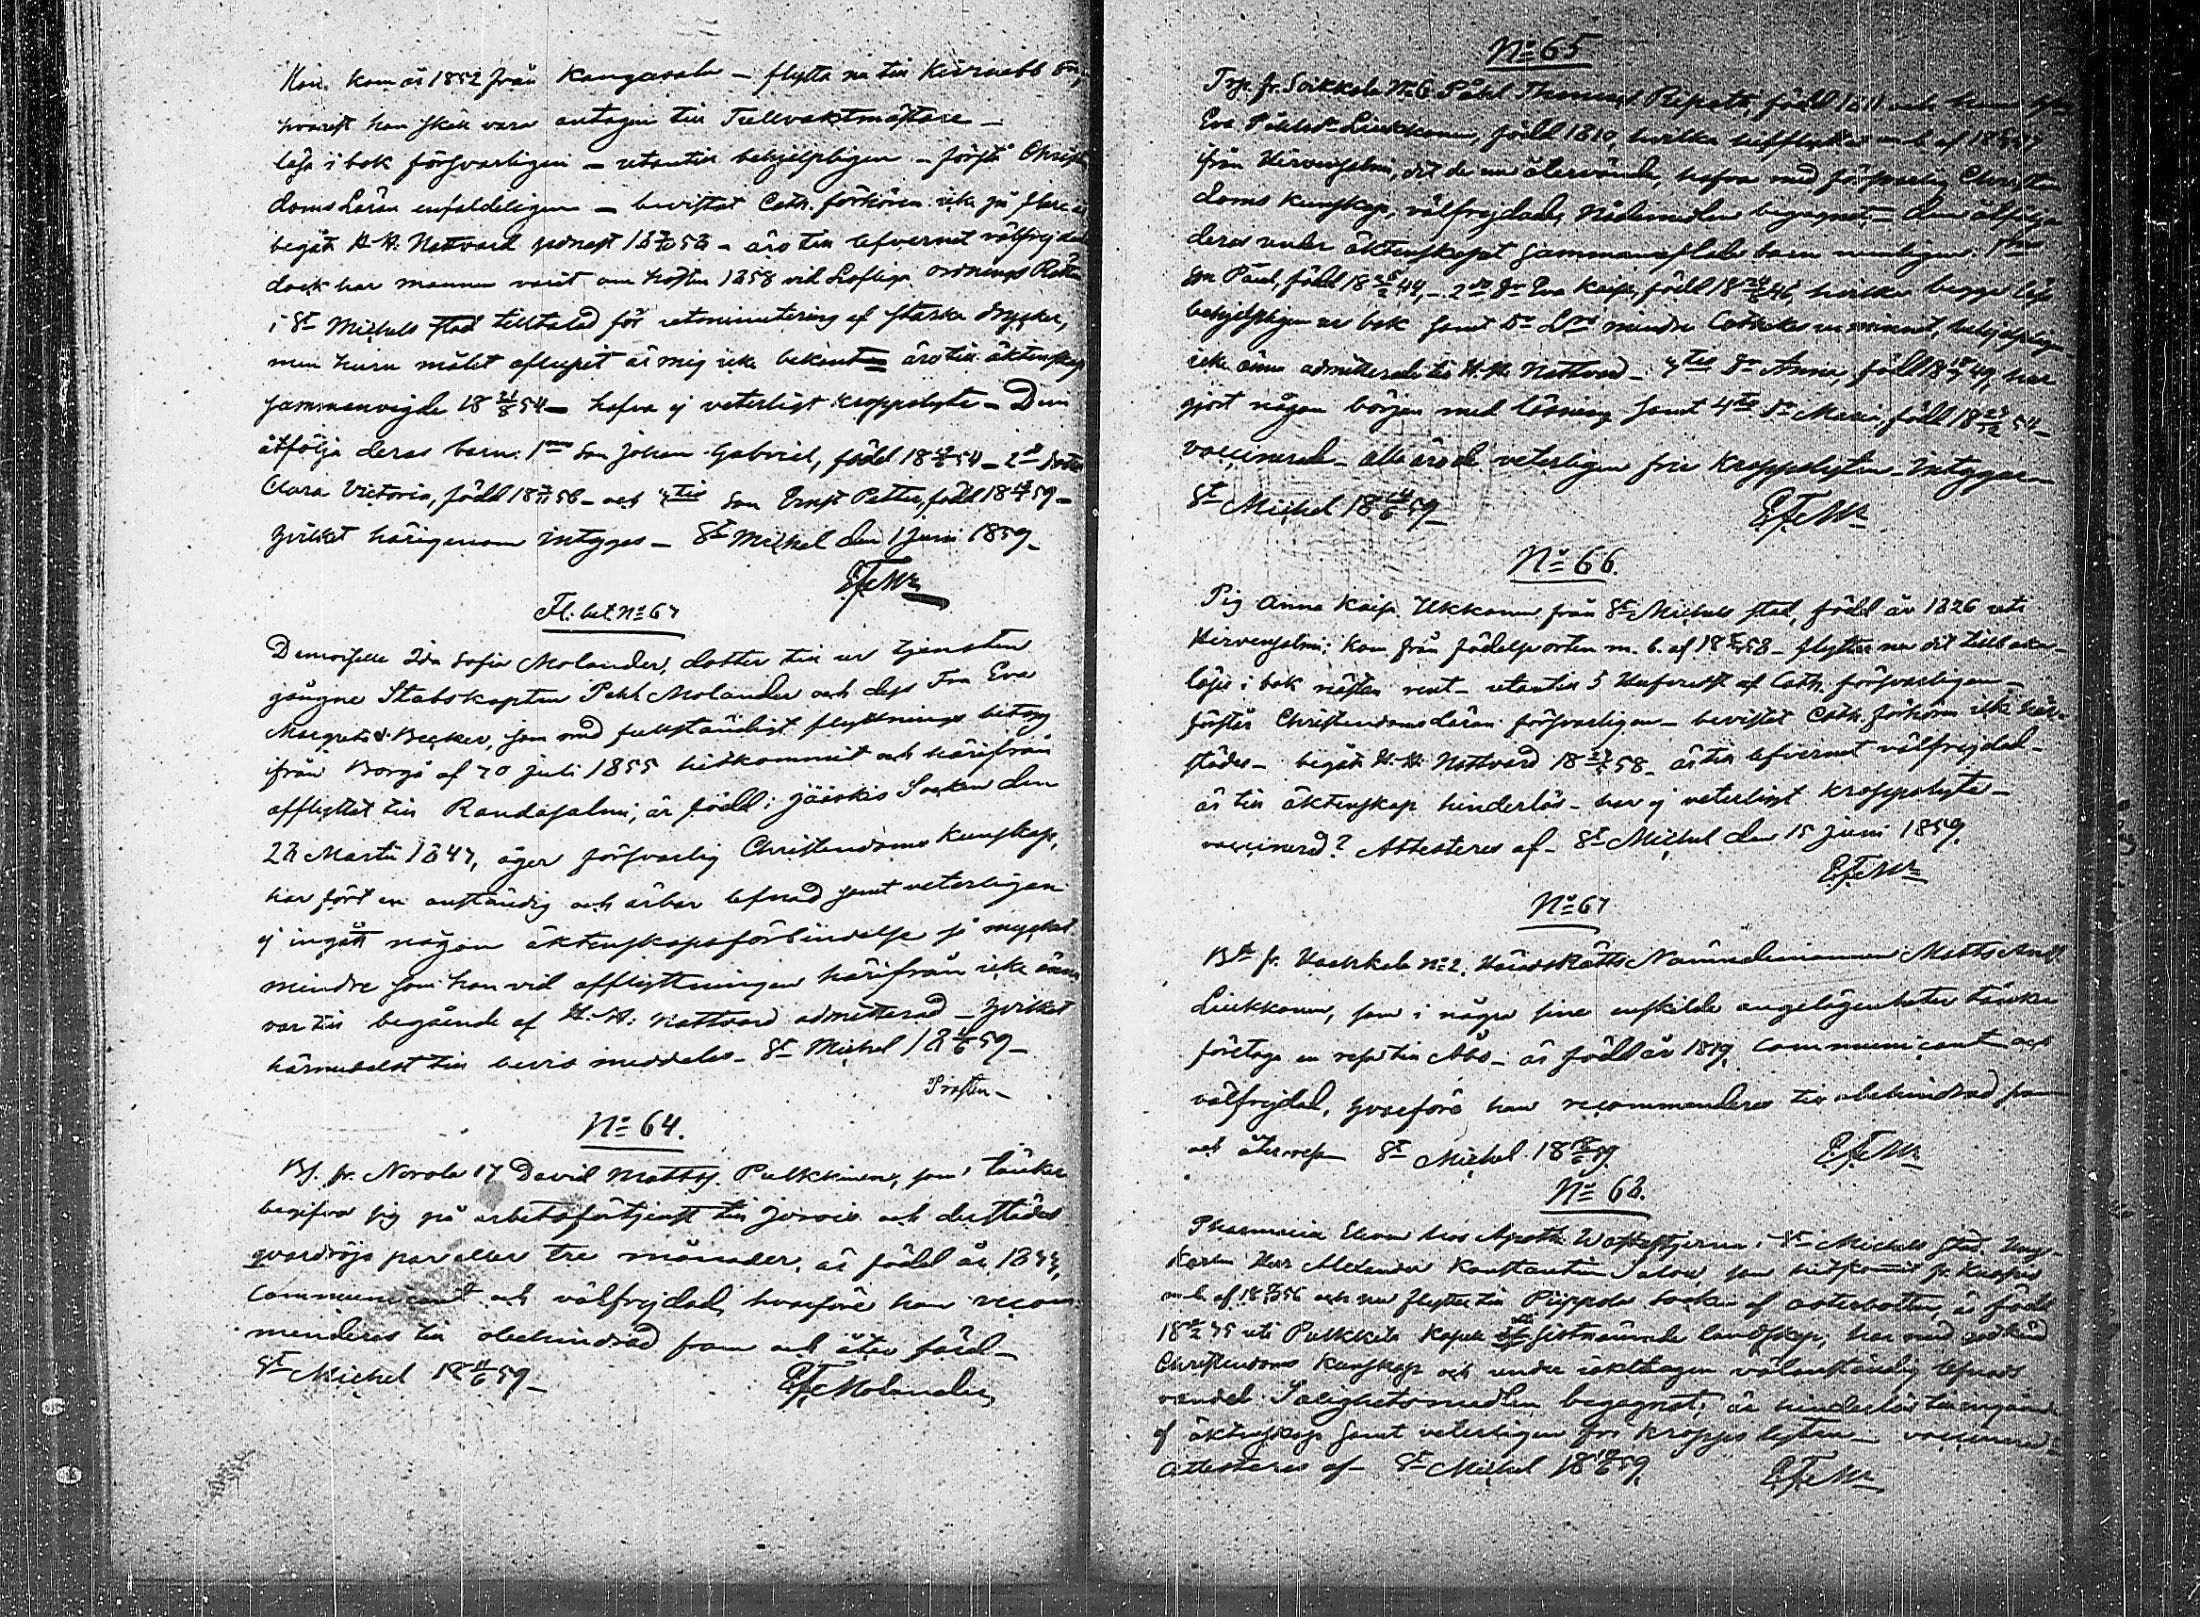 kom år 1852 från Kangasala – flytta nu till
hvarest han skall vara antagen till Tullvaktmästare –
läsa i bok försvarligen – utantill behjelpligen – förstå
doms Läran enfaldeligen – bevistat Cath. förhören icke på flere år
begått H. H. Nattvard – äro till lefvernet välfrejdade
dock har mannen varit om hösten 1858 vid Lofliga Ordnings Rätten
i St Michels stad tilltalad för utminutering af starka drycker,
men huru målet aflupit är mig icke bekant = äro till äktenskap
sammanvigde 18 21/8 54 – hafva ej veterligt kroppslyte – Dem
åtfölja deras barn: 1mo Son Johan Gabriel, född 18 54 – 2o
Clara Victoria, född 18 56 – och 3tio Son Ernst Petter, född 18 59 –
hvilket härigenom intygas – St Michel den 1 Juni 1859 –
E.F. Mr
Fl. bet. No 67
Demoiselle Ida Sofia Molander, dotter till ur tjensten
gångne Stabskapten Pehl Molander och dess Fru Eva
Margreta Becker, som med fullständigt flyttnings betyg
ifrån Borgå af 20 Juli 1855 hitkommit och härifrån
afflyttat till Randasalmi, är född i Jääskis Socken den
28 Martii 1847, äger försvarlig Christendoms kunskap,
har fört en anständig och ärbar lefnad samt veterligen
ej ingått någon äktenskapsförbindelse så mycket
mindre som hon vid afflyttningen härifrån icke ännu
var till begående af H. H. Nattvard admitterad – hvilket
härmedelst till bevis meddelas – St Michel 18 11/6 59 –
Prosten –
No 64.
Bs. fr. Norola 17 David Mattss. Pulkkinen, som tänker
begifva sig på arbetsförtjenst till Jorois och derstädes
qvardröja par eller tre månader, är född år
Communicant och välfrejdad, hvarföre han recom-
menderas till obehindrad fram och åter färd –
St Michel 18 11/6 59 –
E.F. Molander
No 65
Torp. fr. Soikkala No 6 Påhl Thomass. Ripatti, född 1811 och hans
Eva Påhlsdr Liukkonen, född 1810, hvilka hitflyttat m. b. af
ifrån Hirvensalmi, dit de nu återvända, hafva med försvarlig Christen
doms kunskap, välfrejdade, Nådemedlen begagnat – dem åtfölja
deras under äktenskapet sammanaflade barn nemligen: 1mo
Son Påhl, född 18 44, – 2do Dr Eva Kaisa, född 18 46, hvilka begge läsa
behjelpligen ur bok samt Dr Lrs mindre Cathekes ur minnet, behjelpligen
icke ännu admitterade till H. H. Nattvard – 3tio Dr Anna, född 18 49, har
gjort någon början med läsning samt 4to Dr Maria, född 18 54 –
vaccinerade – alla äro de veterligen frie kroppslyten – Intygar
St Michel 18 14/6 59 –
E.F. Mr
No 66.
Pig Anna Kaisa Ukkonen från St Michels stad, född år 1826 uti
Hirvensalmi: kom från födelseorten m. b. af 18 58 – flyttar nu dit tillbaka –
läser i bok nästan rent – utantill 5 Hufvudst af Cath. försvarligen –
förstår Christendomsläran försvarligen – bevistat Cath. förhören icke här-
städes – begått H. H. Nattvard 18 58 – är till lefvernet välfrejdad –
är till äktenskap hinderlös – har ej veterligt kroppslyte –
vaccinerad? Attesteras af – St Michel den 15 Juni 1859.
E.F. Mr
No 67
Bd fr. No 2, Häradsrätts Nämndemannen Matts
Liukkonen, som i några sina enskilda angelägenheter tänker
företaga en resa till Åbo – är född år 1819, Communicant och
välfrejdad, hvarföre han recommenderas till obehindrad fram
och återresa – St Michel 18 59.
E.F. Mr
No 68.
Pharmacie Eleven hos Apoth. i St Michels stad. Ung-
karlen Herr Alexander Konstantin som hitkommit fr. Kuopio
m. b. af 18 56 och nu flyttar till Piippola socken af Österbotten, är född
18 35 uti Pulkkila Kapell af sistnämnde landskap, har med godkänd
Christendoms kunskap och under iakttagen välanständig lefnads
vandel Salighetsmedlen begagnat, är hinderlös till ingående
af äktenskap samt veterligen fri kropps lyten – vaccinerad –
attesteras af – St Michel 18 59.
E.F. Mr